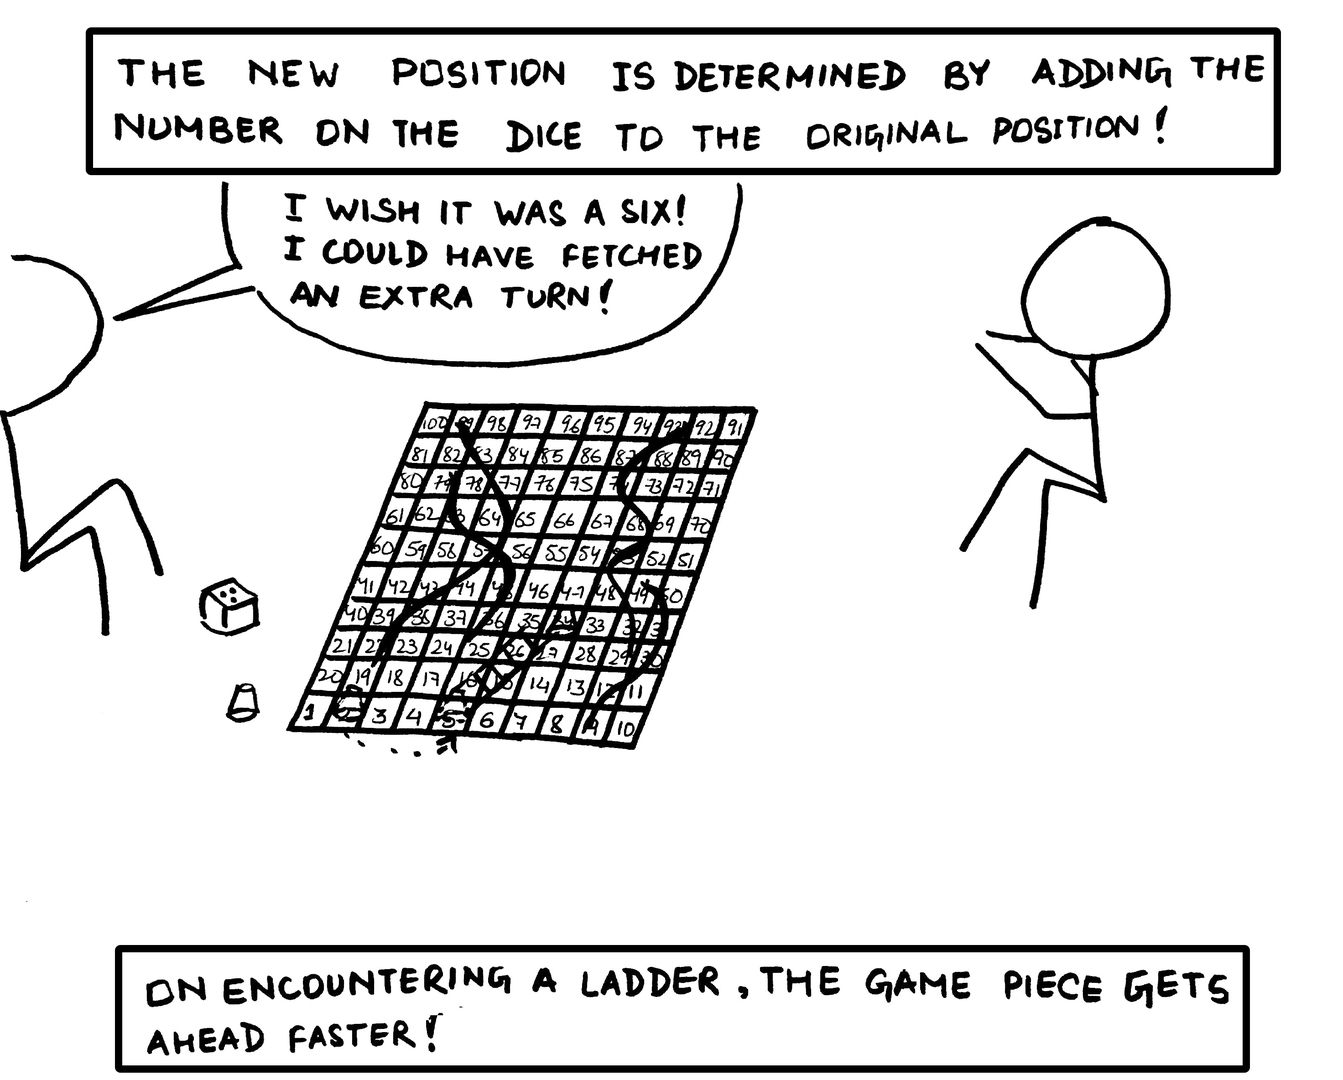 THE NEW POSITION IS DETERMINED BY ADDING THE
NUMBER ON THE DICE TO THE ORIGINAL POSITION!
I WISH IT WAS A SIX!
I COULD HAVE FETCHED
AN EXTRA TURN!
100 99 98 97 96 95 94 93 92 91
81 82 83 84 85 86 87 88 89 90
80 79 78 77 76 75 74 73 72 71
61 62 63 64 65 66 67 68 69 70
60 59 58 57 56 55 54 53 52 51
41 42 43 44 45 46 47 48 49 50
40 39 38 37 36 35 34 33 32
21 22 23 24 25 26 27 28 29 30
20 19 18 17 16 15 14 13 12 11
1 2 3 4 5 6 7 8 9 10
ON ENCOUNTERING A LADDER, THE GAME PIECE GETS
AHEAD FASTER!